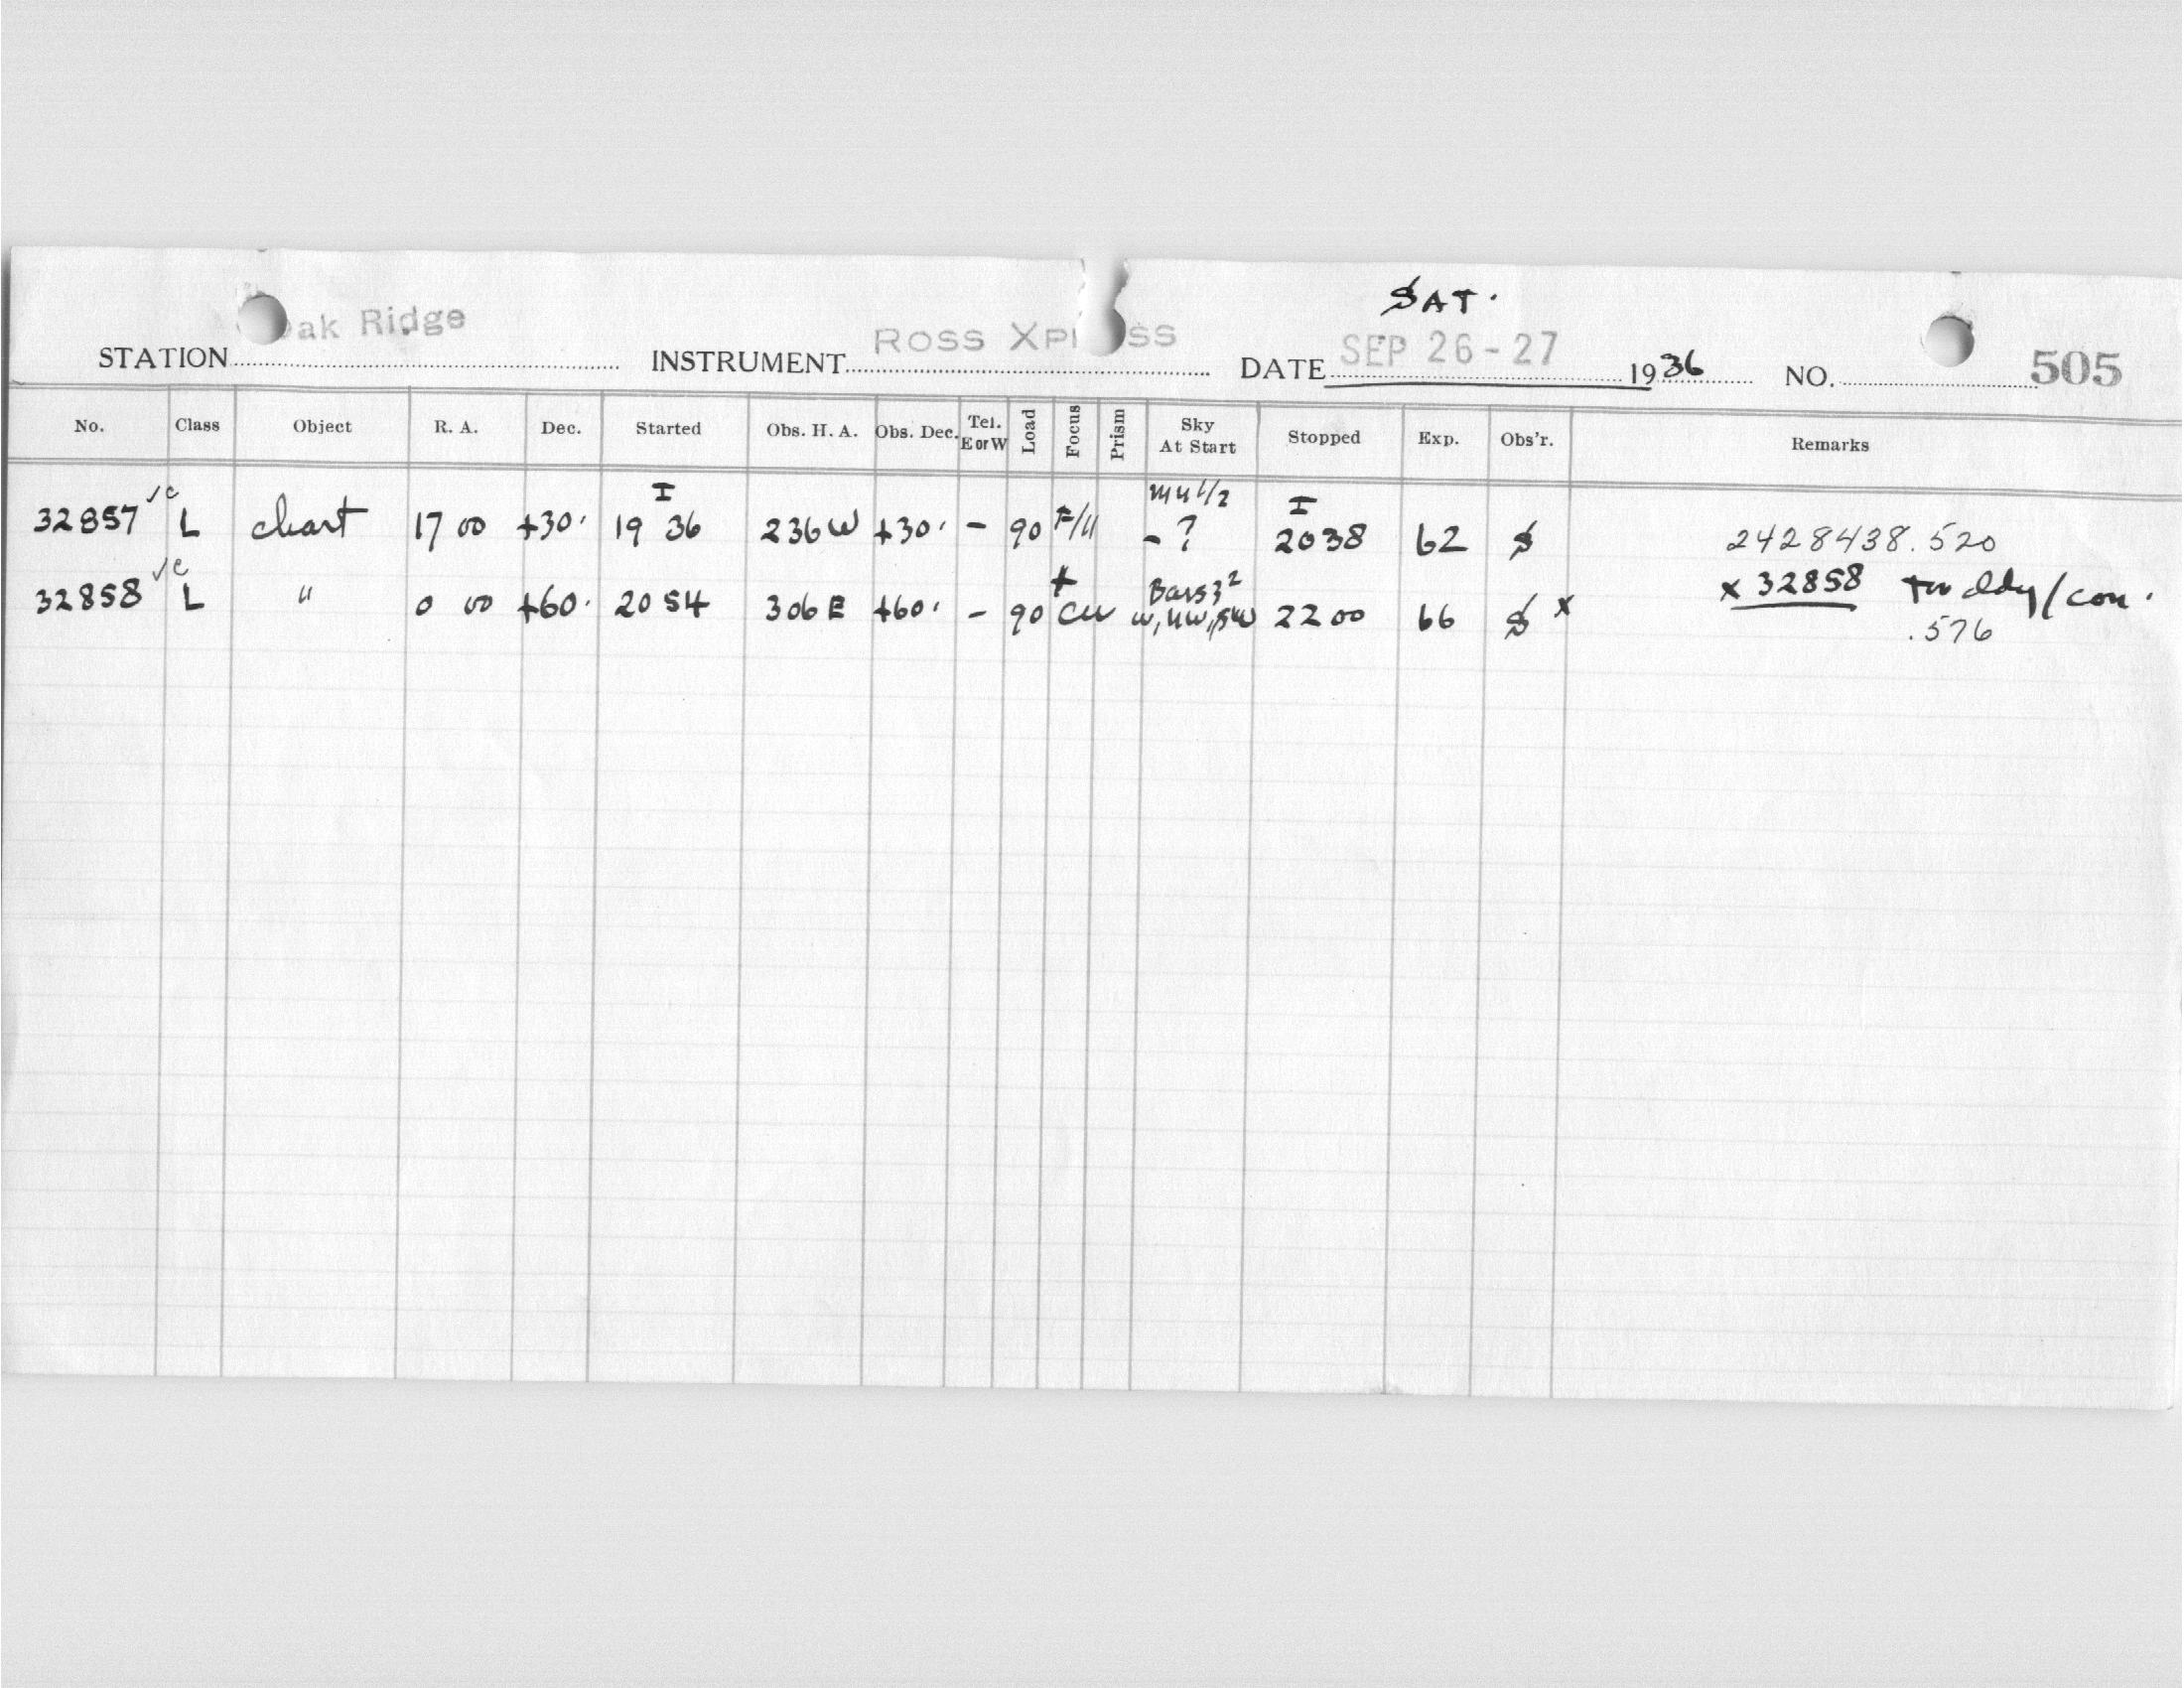 SAT.
STATION Oak Ridge INSTRUMENT ROSS XPRESS DATE SEP 26-27 1936 NO. 505
No. Class Object R. A. Dec. Started Obs. H. A. Obs. Dec. Tel. E or W Load Focus Prism Sky At Start Stopped Exp. Obs'r. Remarks
32857 √c L chart 17 00 +30· I 19 36 236W +30· - 90 - ? I 2038 62 $ 2428438.520
32858 √c L " 0 00 +60· 20 54 306E +60· - 90 Bars 3² W, NW, SW 2200 66 $ x x 32858
.576